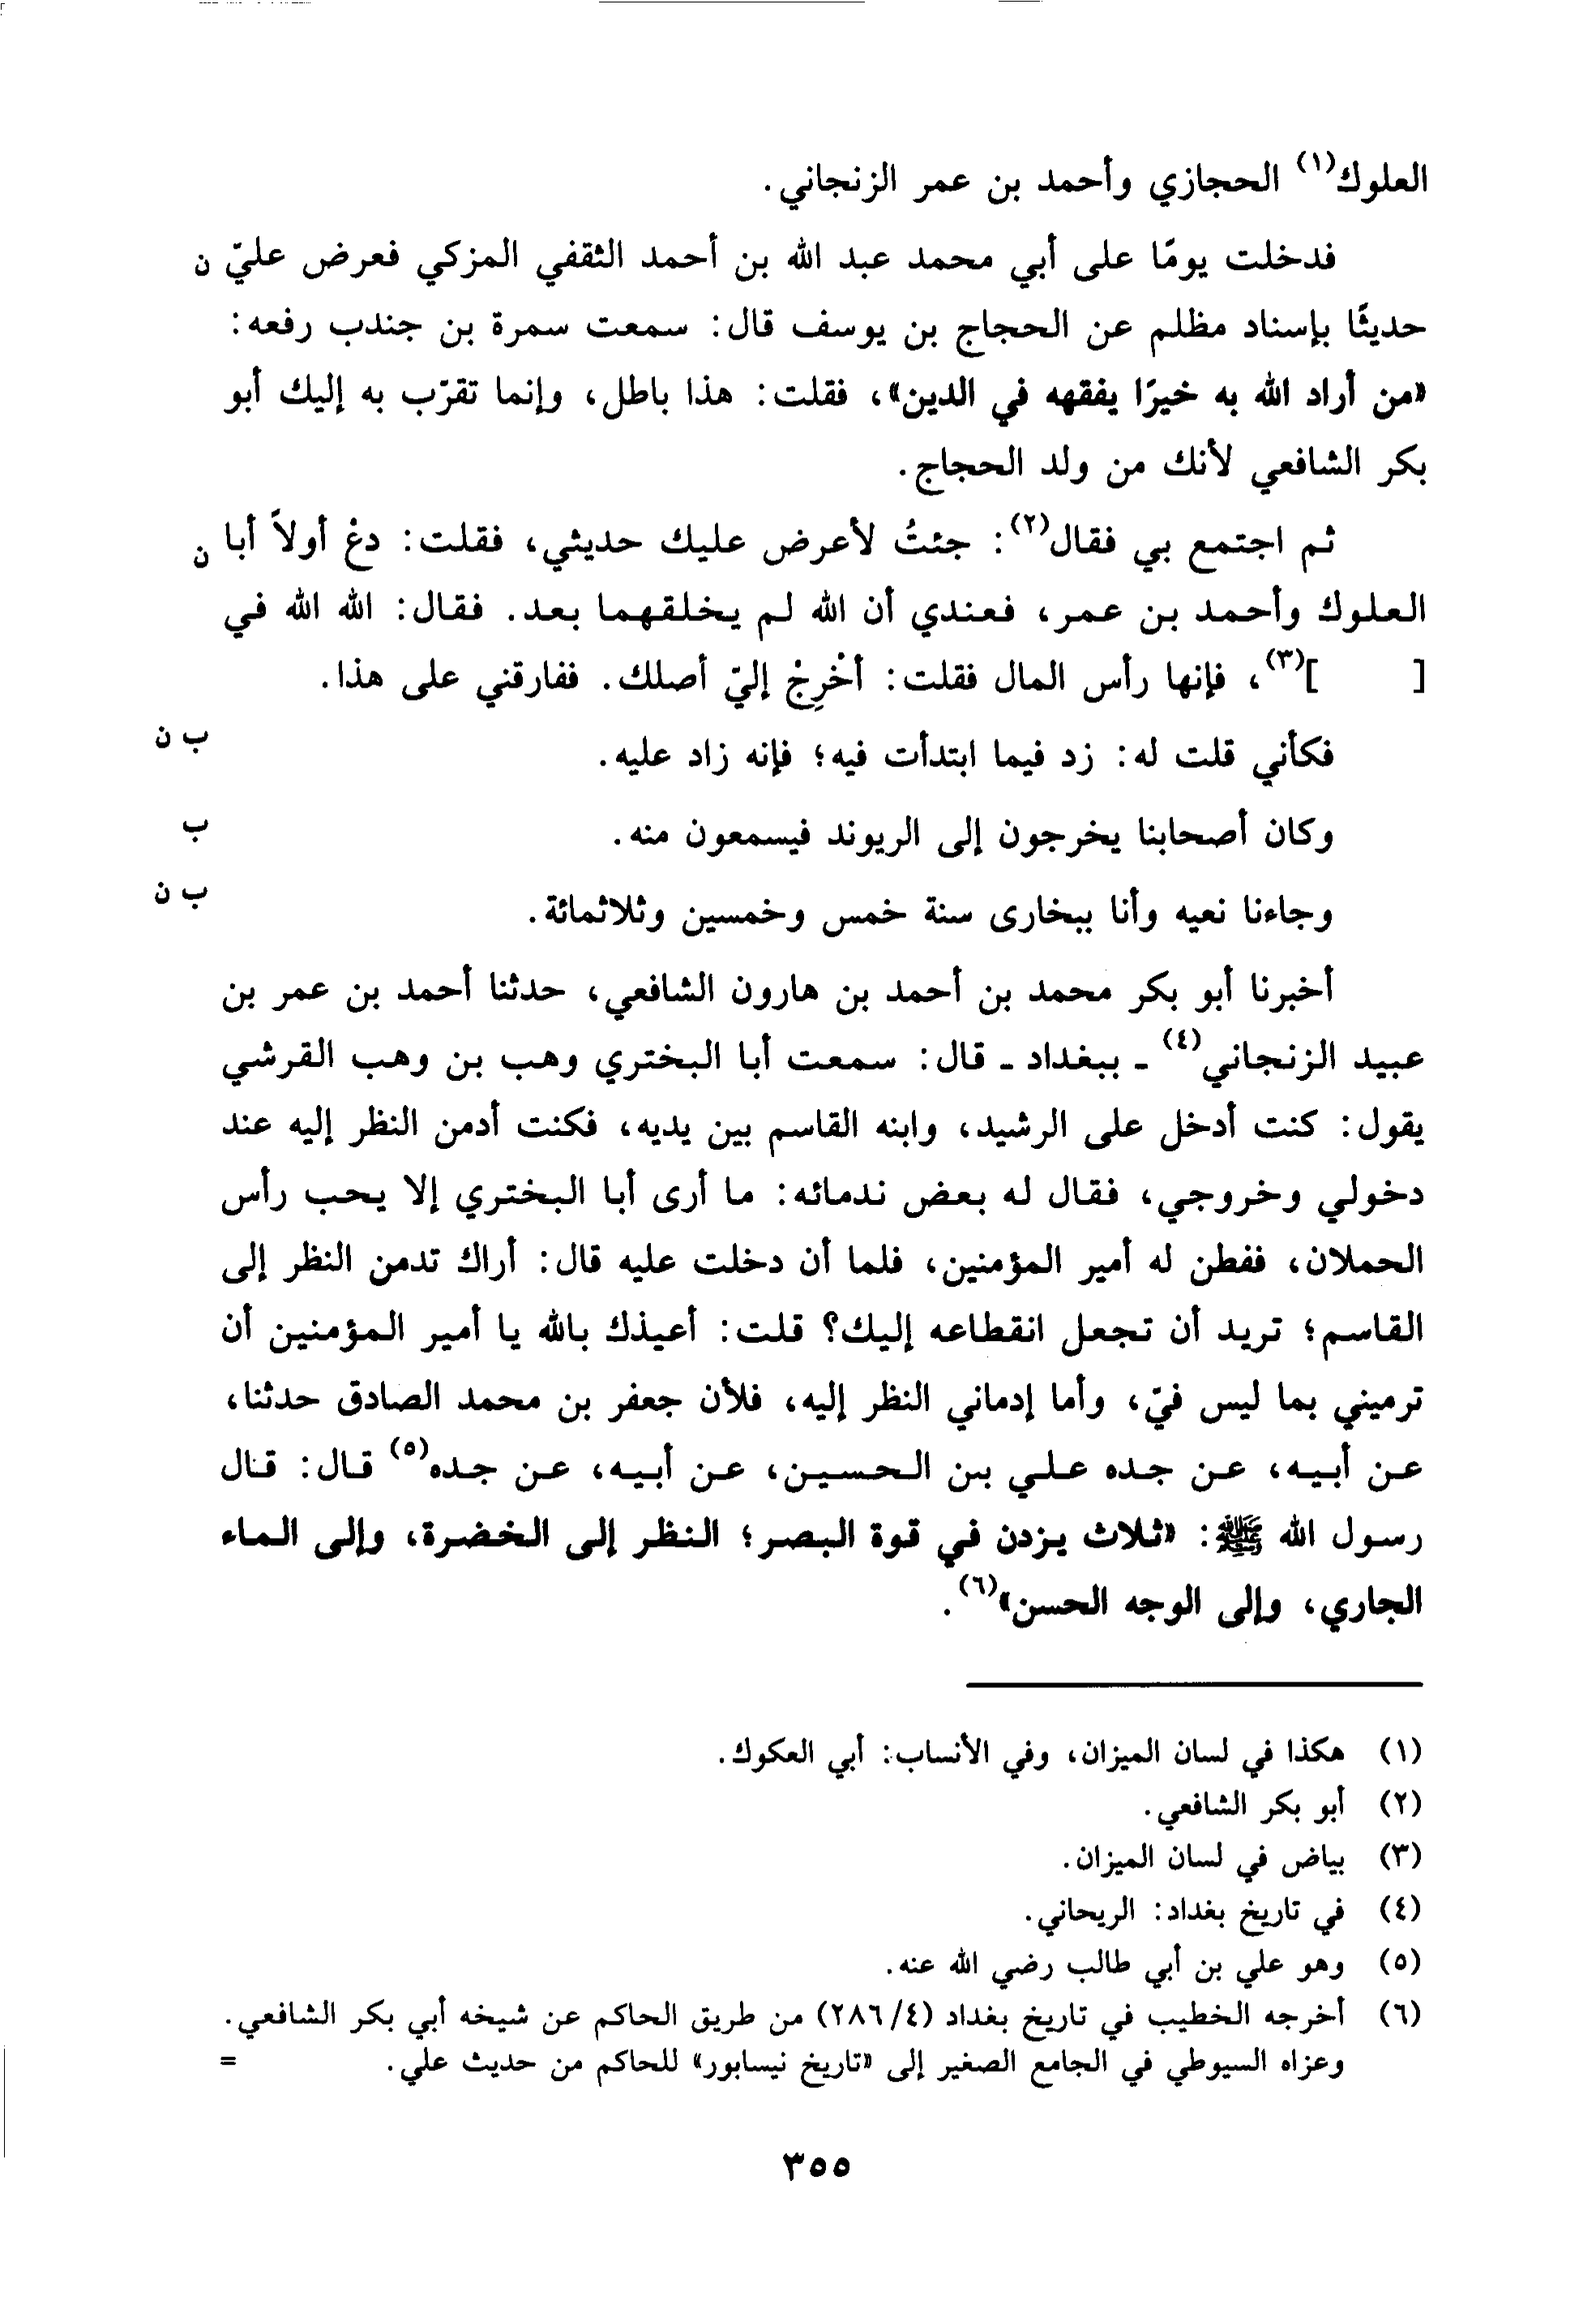 العلوك(١) الحجازي وأحمد بن عمر الزنجاني.
فدخلت يومًا على أبي محمد عبد الله بن أحمد الثقفي المزكي فعرض عليّ ن
حديثًا بإسناد مظلم عن الحجاج بن يوسف قال: سمعت سمرة بن جندب رفعه:
«من أراد الله به خيرًا يفقهه في الدين»، فقلت: هذا باطل، وإنما تقرّب به إليك أبو
بكر الشافعي لأنك من ولد الحجاج.
ثم اجتمع بي فقال(٢): جئتُ لأعرض عليك حديثي، فقلت: دعْ أولاً أبا ن
العلوك وأحمد بن عمر، فعندي أن الله لم يخلقهما بعد. فقال: الله الله في
[ ](٣)، فإنها رأس المال فقلت: أخْرِجْ إليّ أصلك. ففارقني على هذا.
فكأني قلت له: زد فيما ابتدأت فيه؛ فإنه زاد عليه. ب ن
وكان أصحابنا يخرجون إلى الريوند فيسمعون منه. ب
وجاءنا نعيه وأنا ببخارى سنة خمس وخمسين وثلاثمائة. ب ن
أخبرنا أبو بكر محمد بن أحمد بن هارون الشافعي، حدثنا أحمد بن عمر بن
عبيد الزنجاني(٤) ـ ببغداد ـ قال: سمعت أبا البختري وهب بن وهب القرشي
يقول: كنت أدخل على الرشيد، وابنه القاسم بين يديه، فكنت أدمن النظر إليه عند
دخولي وخروجي، فقال له بعض ندمائه: ما أرى أبا البختري إلا يحب رأس
الحملان، ففطن له أمير المؤمنين، فلما أن دخلت عليه قال: أراك تدمن النظر إلى
القاسم؛ تريد أن تجعل انقطاعه إليك؟ قلت: أعيذك بالله يا أمير المؤمنين أن
ترميني بما ليس فيّ، وأما إدماني النظر إليه، فلأن جعفر بن محمد الصادق حدثنا،
عن أبيه، عن جده علي بن الحسين، عن أبيه، عن جده(٥) قال: قال
رسول الله ﷺ: «ثلاث يزدن في قوة البصر؛ النظر إلى الخضرة، وإلى الماء
الجاري، وإلى الوجه الحسن»(٦).
(١) هكذا في لسان الميزان، وفي الأنساب: أبي العكوك.
(٢) أبو بكر الشافعي.
(٣) بياض في لسان الميزان.
(٤) في تاريخ بغداد: الريحاني.
(٥) وهو علي بن أبي طالب رضي الله عنه.
(٦) أخرجه الخطيب في تاريخ بغداد (٢٨٦/٤) من طريق الحاكم عن شيخه أبي بكر الشافعي.
وعزاه السيوطي في الجامع الصغير إلى «تاريخ نيسابور» للحاكم من حديث علي. =
٣٥٥